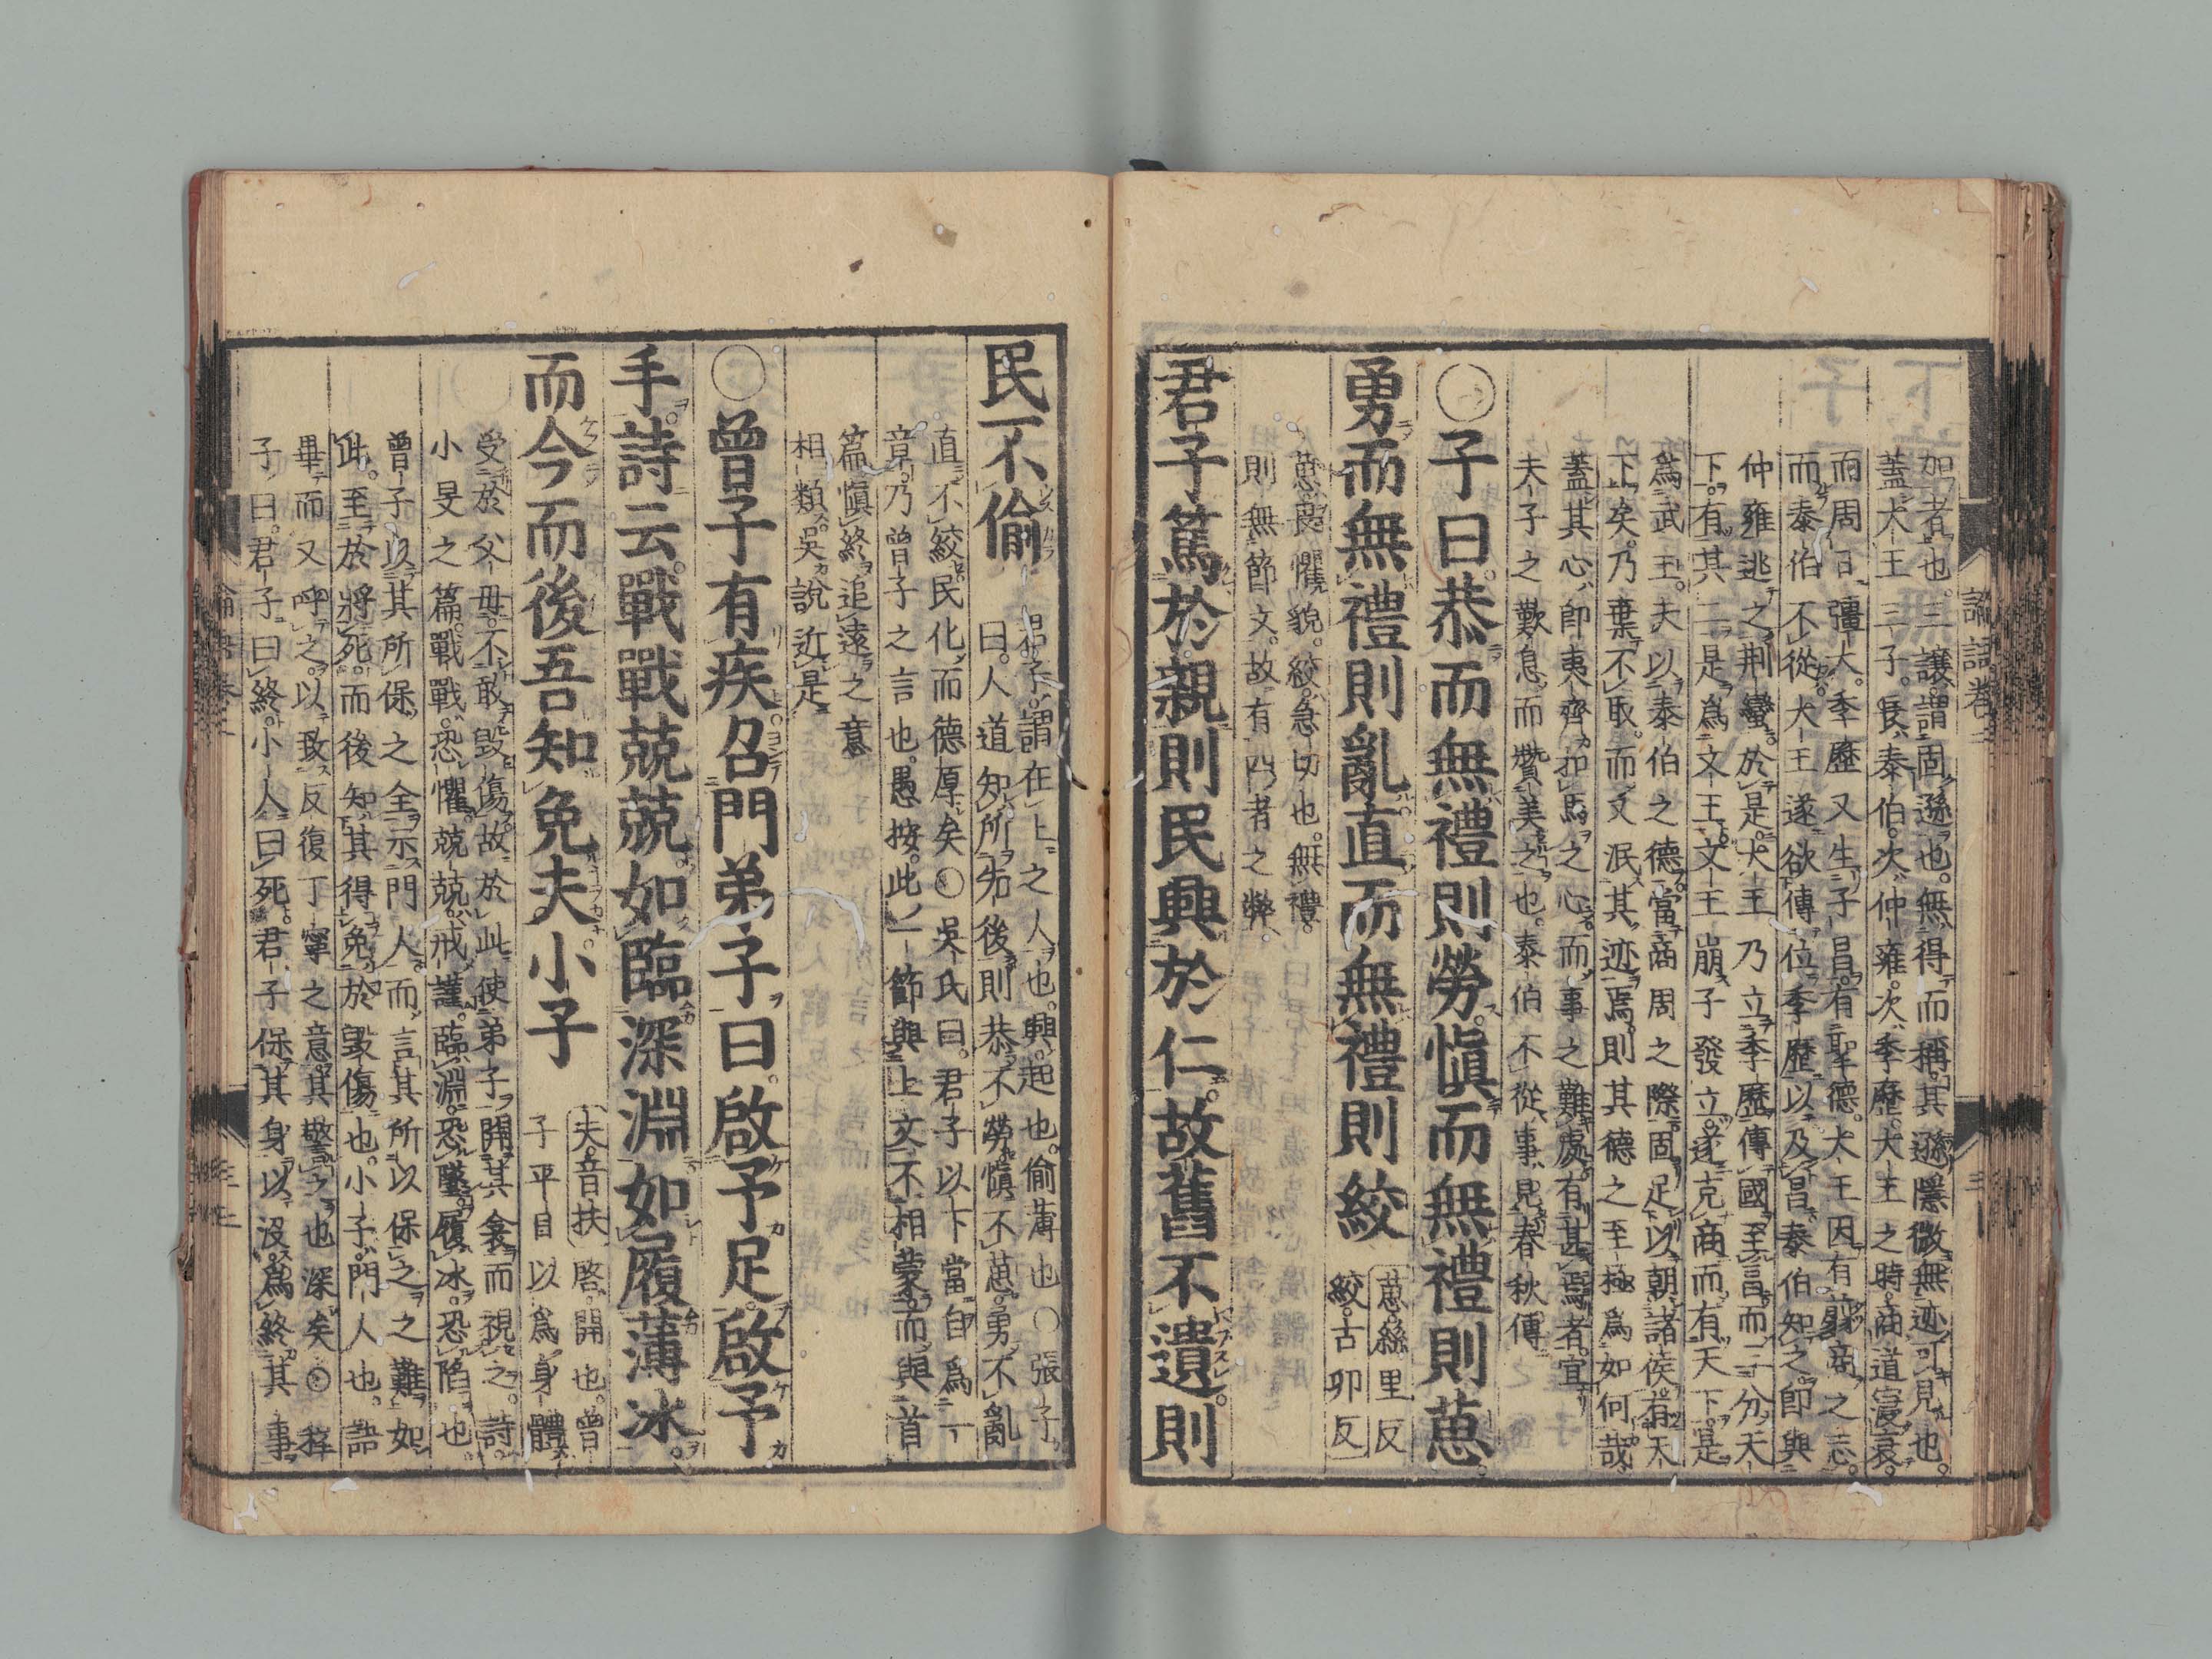 加者也三讓謂固遜也無得而稱其遜隱微無迹可見也
蓋大王三子長泰伯次仲雍次季歷大王之時商道寖衰
而周日彊大季歷又生子昌有聖德大王因有翦商之志
而泰伯不從大王遂欲傳位季歷以及昌泰伯知之即與
仲雍逃之荆蠻於是大王乃立季歷傳國至昌而三分天
下有其二是爲文王文王崩子發立遂克商而有天下是
爲武王夫以泰伯之德當商周之際固足以朝諸侯有天
下矣乃棄不取而又泯其迹焉則其德之至極爲如何哉
蓋其心即夷齊扣馬之心而事之難處有甚焉者宜
夫子之歎息而贊美之也泰伯不從事見春秋傳
○子曰恭而無禮則勞愼而無禮則葸
勇而無禮則亂直而無禮則絞
葸絲里反
絞古卯反
葸畏懼貌絞急切也無禮
則無節文故有四者之弊
君子篤於親則民興於仁故舊不遺則
論語卷三
民不偷
君子謂在上之人也興起也偷薄也○張子
曰人道知所先後則恭不勞愼不葸勇不亂
直不絞民化而德厚矣○吳氏曰君子以下當自爲一
章乃曾子之言也愚按此一節與上文不相蒙而與首
篇愼終追遠之意
相類吳說近是
○曾子有疾召門弟子曰啟予足啟予
手詩云戰戰兢兢如臨深淵如履薄冰
而今而後吾知免夫小子
夫音扶啓開也曾
子平日以爲身體
受於父母不敢毀傷故於此使弟子開其衾而視之詩
小旻之篇戰戰恐懼兢兢戒謹臨淵恐墜履冰恐陷也
曾子以其所保之全示門人而言其所以保之之難如
此至於將死而後知其得免於毀傷也小子門人也語
畢而又呼之以致反復丁寧之意其警之也深矣○程
子曰君子曰終小人曰死君子保其身以沒爲終其事